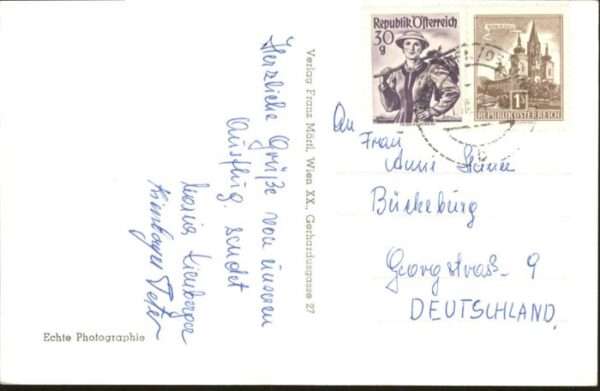 Herzliche Grüße von unserem
Ausflug. sendet
Maria
Peter
Verlag Franz Mörtl, Wien XX., Gerhardusgasse 27
Echte Photographie
Republik Österreich
30
g
1S
REPUBLIK ÖSTERREICH
An
Frau
Bückeburg
Georgstraß- 9
DEUTSCHLAND.